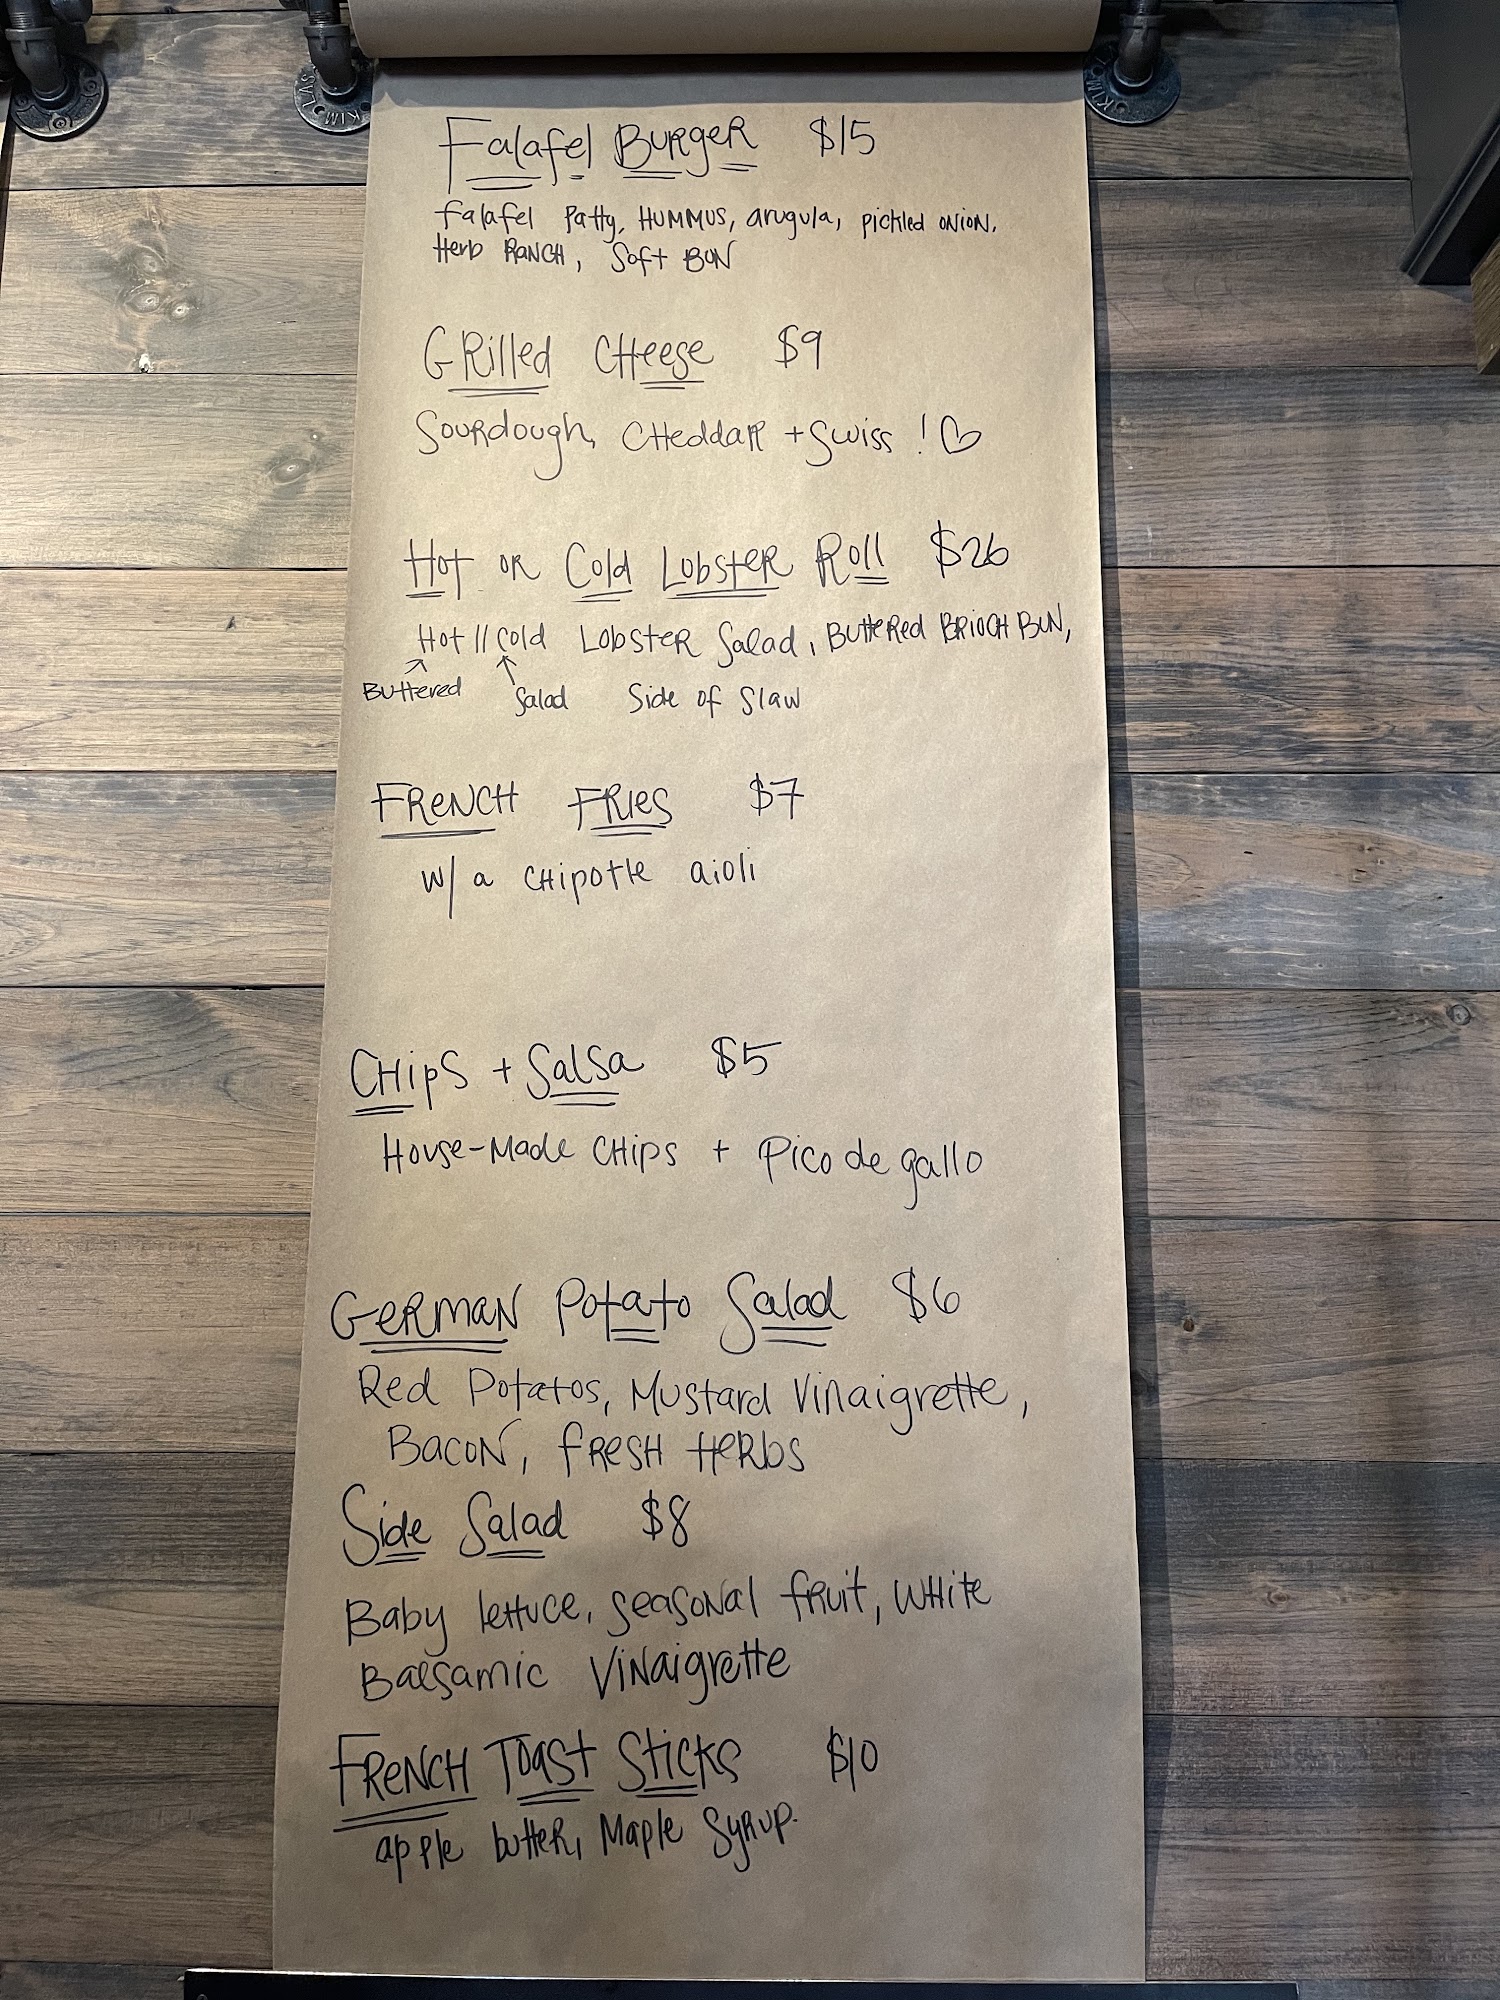 Falafel Burger $15
falafel patty, Hummus, arugula, pickled onion,
Herb Ranch, Soft Bun
Grilled Cheese $9
Sourdough, Cheddar + Swiss ! ♡
Hot or Cold Lobster Roll $26
Hot // Cold Lobster Salad, Buttered Brioch Bun,
Buttered Salad Side of Slaw
French Fries $7
w/ a chipotle aioli
Chips + Salsa $5
House-Made Chips + Pico de gallo
German Potato Salad $6
Red Potatos, Mustard Vinaigrette,
Bacon, fresh Herbs
Side Salad $8
Baby lettuce, seasonal fruit, white
Balsamic Vinaigrette
French Toast Sticks $10
apple butter, Maple Syrup.